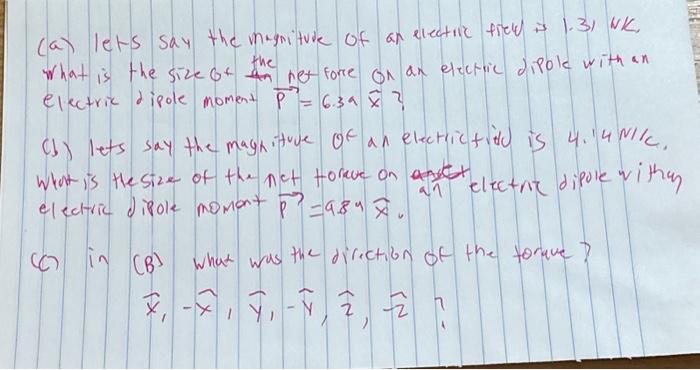 (a) lets say the magnitude of an electric field is 1.31 N/C.
What is the size of the net force on an electric dipole with an
electric dipole moment p⃗ = 6.39 x̂ ?
(b) lets say the magnitude of an electric field is 4.14 N/C.
What is the size of the net torque on an electric dipole with an
electric dipole moment p⃗ = 9.89 x̂.
(c) in (B) what was the direction of the torque?
x̂, -x̂, ŷ, -ŷ, ẑ, -ẑ ?